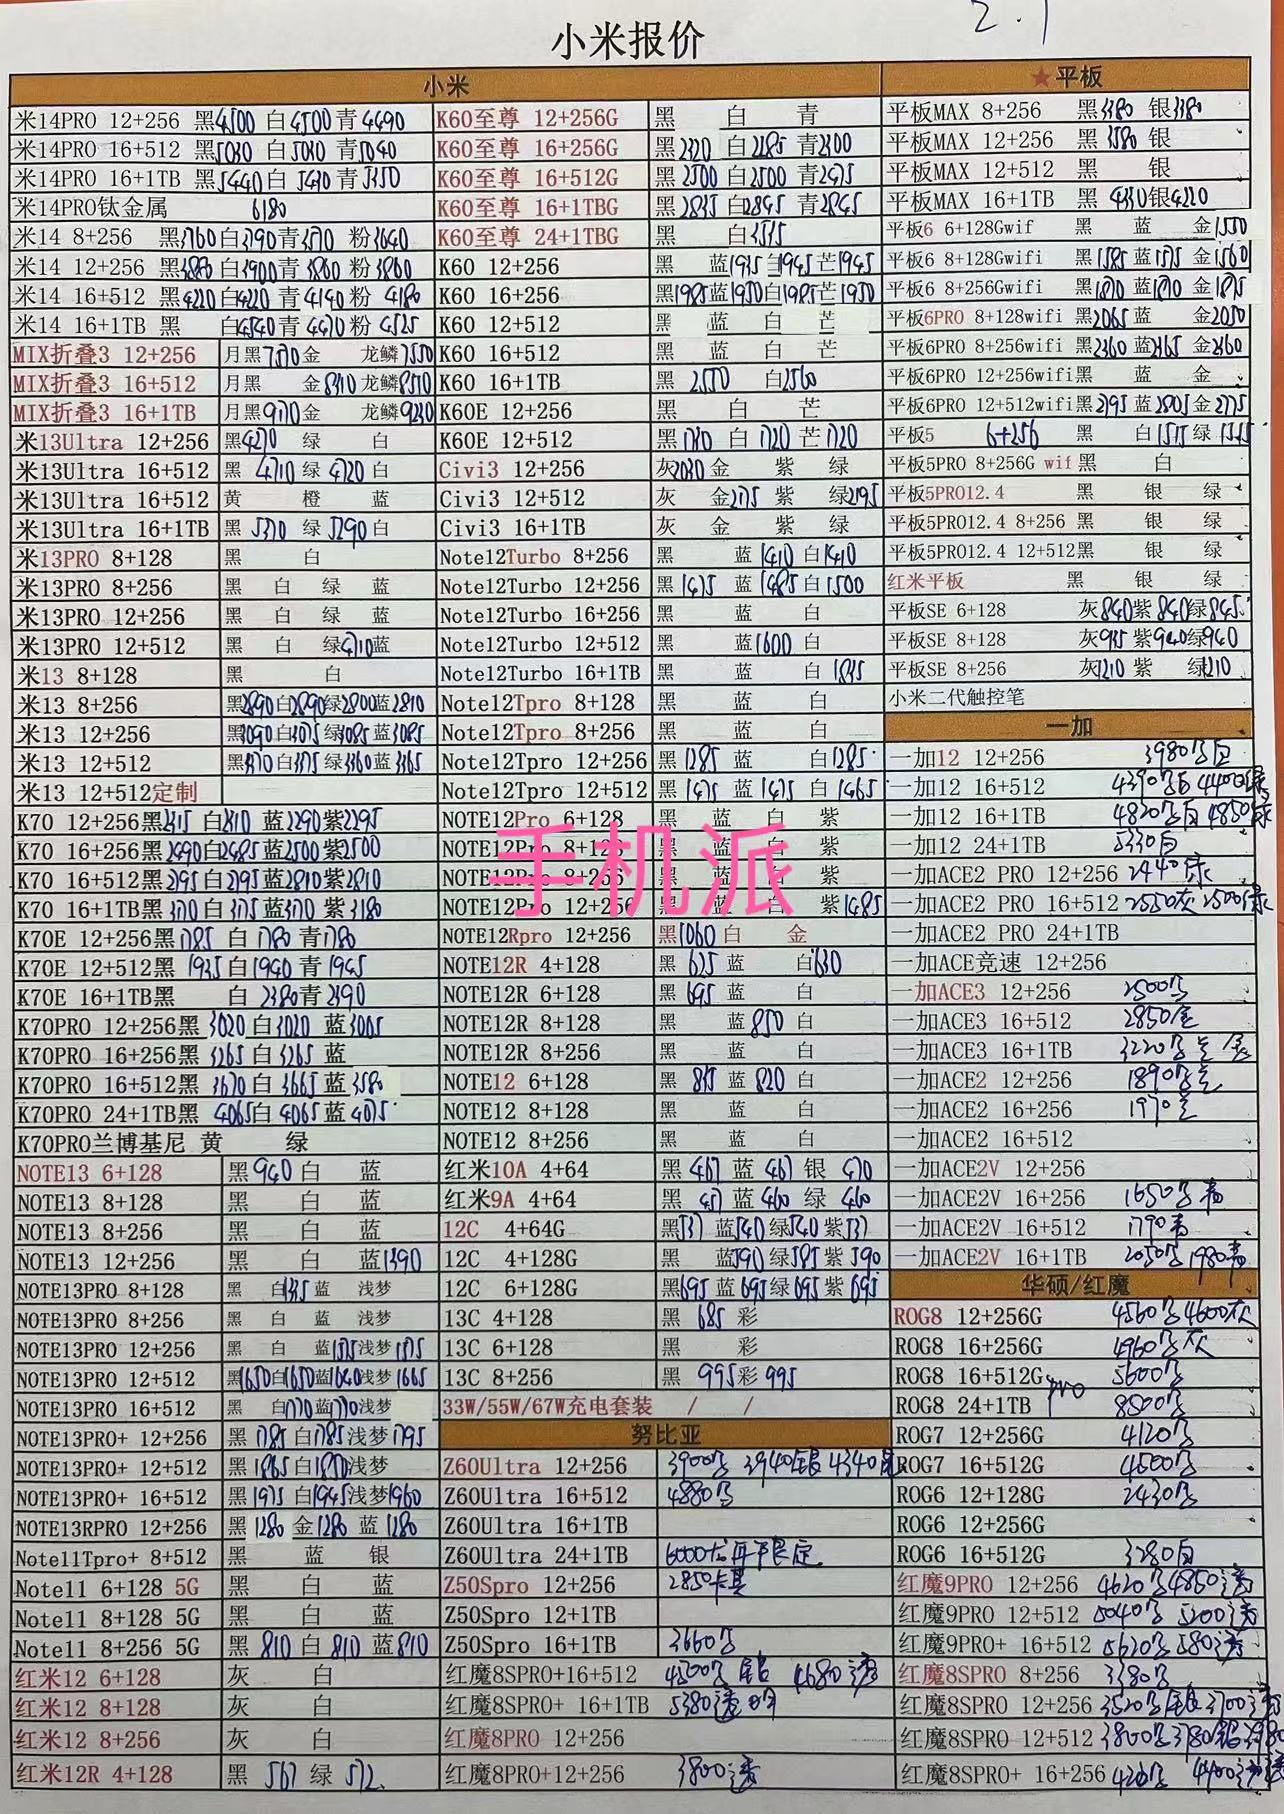 2.1
小米报价
小米
米14PRO 12+256 黑4500 白4500 青4490
米14PRO 16+512 黑5030 白5030 青5040
米14PRO 16+1TB 黑5440 白5430 青5350
米14PRO钛金属 6180
米14 8+256 黑3760 白3790 青3570 粉3640
米14 12+256 黑3880 白3900 青3860 粉3860
米14 16+512 黑4220 白4220 青4140 粉4180
米14 16+1TB 黑 白4540 青4470 粉4525
MIX折叠3 12+256 月黑7570 金 龙鳞7550
MIX折叠3 16+512 月黑 金8310 龙鳞8510
MIX折叠3 16+1TB 月黑9170 金 龙鳞9230
米13Ultra 12+256 黑4270 绿 白
米13Ultra 16+512 黑 4710 绿 4720 白
米13Ultra 16+512 黄 橙 蓝
米13Ultra 16+1TB 黑 5370 绿 5290 白
米13PRO 8+128 黑 白
米13PRO 8+256 黑 白 绿 蓝
米13PRO 12+256 黑 白 绿 蓝
米13PRO 12+512 黑 白 绿4710 蓝
米13 8+128 黑 白
米13 8+256 黑2890 白2890 绿2800 蓝2810
米13 12+256 黑3090 白3075 绿3085 蓝3085
米13 12+512 黑3370 白3375 绿3360 蓝3365
米13 12+512定制
K70 12+256黑2315 白2310 蓝2290 紫2295
K70 16+256黑2490 白2485 蓝2500 紫2500
K70 16+512黑2795 白2795 蓝2810 紫2810
K70 16+1TB黑3170 白3175 蓝3170 紫3180
K70E 12+256黑1785 白1780 青1780
K70E 12+512黑 1935 白1940 青1945
K70E 16+1TB黑 白 2380 青2390
K70PRO 12+256黑 3020 白3020 蓝3005
K70PRO 16+256黑 3265 白3265 蓝
K70PRO 16+512黑 3670 白3665 蓝3580
K70PRO 24+1TB黑 4065 白4065 蓝4075
K70PRO兰博基尼 黄 绿
NOTE13 6+128 黑940 白 蓝
NOTE13 8+128 黑 白 蓝
NOTE13 8+256 黑 白 蓝
NOTE13 12+256 黑 白 蓝1390
NOTE13PRO 8+128 黑 白 蓝 浅梦
NOTE13PRO 8+256 黑 白 蓝 浅梦
NOTE13PRO 12+256 黑 白 蓝1575 浅梦1575
NOTE13PRO 12+512 黑1650 白1650 蓝1640 浅梦1665
NOTE13PRO 16+512 黑 白1770 蓝1770 浅梦
NOTE13PRO+ 12+256 黑1785 白1785 浅梦1795
NOTE13PRO+ 12+512 黑1865 白1850 浅梦
NOTE13PRO+ 16+512 黑1975 白1945 浅梦1960
NOTE13RPRO 12+256 黑 1280 金1280 蓝1280
Note11Tpro+ 8+512 黑 蓝 银
Note11 6+128 5G 黑 白 蓝
Note11 8+128 5G 黑 白 蓝
Note11 8+256 5G 黑 810 白 810 蓝810
红米12 6+128 灰 白
红米12 8+128 灰 白
红米12 8+256 灰 白
红米12R 4+128 黑 567 绿 572
K60至尊 12+256G 黑 白 青
K60至尊 16+256G 黑2320 白2285 青2300
K60至尊 16+512G 黑2500 白2500 青2495
K60至尊 16+1TBG 黑2835 白2845 青2845
K60至尊 24+1TBG 黑 白3535
K60 12+256 黑 蓝1935 白1945 芒1945
K60 16+256 黑1985 蓝1950 白1985 芒1950
K60 12+512 黑 蓝 白 芒
K60 16+512 黑 蓝 白 芒
K60 16+1TB 黑 2550 白2560
K60E 12+256 黑 白 芒
K60E 12+512 黑1780 白1720 芒1720
Civi3 12+256 灰2030 金 紫 绿
Civi3 12+512 灰 金2175 紫 绿2195
Civi3 16+1TB 灰 金 紫 绿
Note12Turbo 8+256 黑 蓝1410 白1410
Note12Turbo 12+256 黑1475 蓝1485 白1500
Note12Turbo 16+256 黑 蓝 白
Note12Turbo 12+512 黑 蓝1600 白
Note12Turbo 16+1TB 黑 蓝 白1835
Note12Tpro 8+128 黑 蓝 白
Note12Tpro 8+256 黑 蓝 白
Note12Tpro 12+256 黑1285 蓝 白1285
Note12Tpro 12+512 黑1475 蓝1475 白1465
NOTE12Pro 6+128 黑 蓝 白 紫
NOTE12Pro 8+128 黑 蓝 白 紫
NOTE12Pro 8+256 黑 蓝 白 紫
NOTE12Pro 12+256 黑 蓝 白 紫1485
手机派
NOTE12Rpro 12+256 黑1060 白 金
NOTE12R 4+128 黑 625 蓝 白630
NOTE12R 6+128 黑 695 蓝 白
NOTE12R 8+128 黑 蓝850 白
NOTE12R 8+256 黑 蓝 白
NOTE12 6+128 黑 815 蓝820 白
NOTE12 8+128 黑 蓝 白
NOTE12 8+256 黑 蓝 白
红米10A 4+64 黑 467 蓝 467 银 470
红米9A 4+64 黑 457 蓝 460 绿 460
12C 4+64G 黑537 蓝540 绿540 紫537
12C 4+128G 黑 蓝590 绿585 紫590
12C 6+128G 黑695 蓝695 绿695 紫695
13C 4+128 黑 685 彩
13C 6+128 黑 彩
13C 8+256 黑 995 彩 995
33W/55W/67W充电套装 / /
努比亚
Z60Ultra 12+256 3900黑 3940银 4340
Z60Ultra 16+512 4880黑
Z60Ultra 16+1TB
Z60Ultra 24+1TB 6000龙年限定
Z50Spro 12+256 2850卡其
Z50Spro 12+1TB
Z50Spro 16+1TB 3660黑
红魔8SPRO+16+512 4300黑 银 4680透
红魔8SPRO+ 16+1TB 5380透
红魔8PRO 12+256
红魔8PRO+12+256 3800透
★平板
平板MAX 8+256 黑3380 银3380
平板MAX 12+256 黑 3580 银
平板MAX 12+512 黑 银
平板MAX 16+1TB 黑 4330 银4220
平板6 6+128Gwif 黑 蓝 金1550
平板6 8+128Gwifi 黑1585 蓝1575 金1560
平板6 8+256Gwifi 黑1870 蓝1870 金1875
平板6PRO 8+128wifi 黑2065 蓝 金2050
平板6PRO 8+256wifi 黑2360 蓝2365 金2360
平板6PRO 12+256wifi黑 蓝 金
平板6PRO 12+512wifi黑2795 蓝2805 金2775
平板5 6+256 黑 白1515 绿
平板5PRO 8+256G wif 黑 白
平板5PRO12.4 黑 银 绿
平板5PRO12.4 8+256 黑 银 绿
平板5PRO12.4 12+512黑 银 绿
红米平板 黑 银 绿
平板SE 6+128 灰840 紫840 绿845
平板SE 8+128 灰935 紫940 绿940
平板SE 8+256 灰1210 紫 绿1210
小米二代触控笔
一加
一加12 12+256 3980黑白
一加12 16+512 4390黑白 4400绿
一加12 16+1TB 4820黑白 4850绿
一加12 24+1TB 5330白
一加ACE2 PRO 12+256 2440绿
一加ACE2 PRO 16+512 2550灰 2500绿
一加ACE2 PRO 24+1TB
一加ACE竞速 12+256
一加ACE3 12+256 2500黑
一加ACE3 16+512 2850蓝
一加ACE3 16+1TB 3220黑
一加ACE2 12+256 1890黑
一加ACE2 16+256 1970
一加ACE2 16+512
一加ACE2V 12+256
一加ACE2V 16+256 1650黑 青
一加ACE2V 16+512 1790青
一加ACE2V 16+1TB 2050黑 1980青
华硕/红魔
ROG8 12+256G 4560黑 4600灰
ROG8 16+256G 4960黑灰
ROG8 16+512G PRO 5600黑
ROG8 24+1TB 8500黑
ROG7 12+256G 4120黑
ROG7 16+512G 4500黑
ROG6 12+128G 2430黑
ROG6 12+256G
ROG6 16+512G 3280白
红魔9PRO 12+256 4620黑 4850透
红魔9PRO 12+512 5040黑 5200透
红魔9PRO+ 16+512 5620黑 580透
红魔8SPRO 8+256 3380黑
红魔8SPRO 12+256 3520黑银 3700透
红魔8SPRO 12+512 3800黑 3780银
红魔8SPRO+ 16+256 黑 4400透